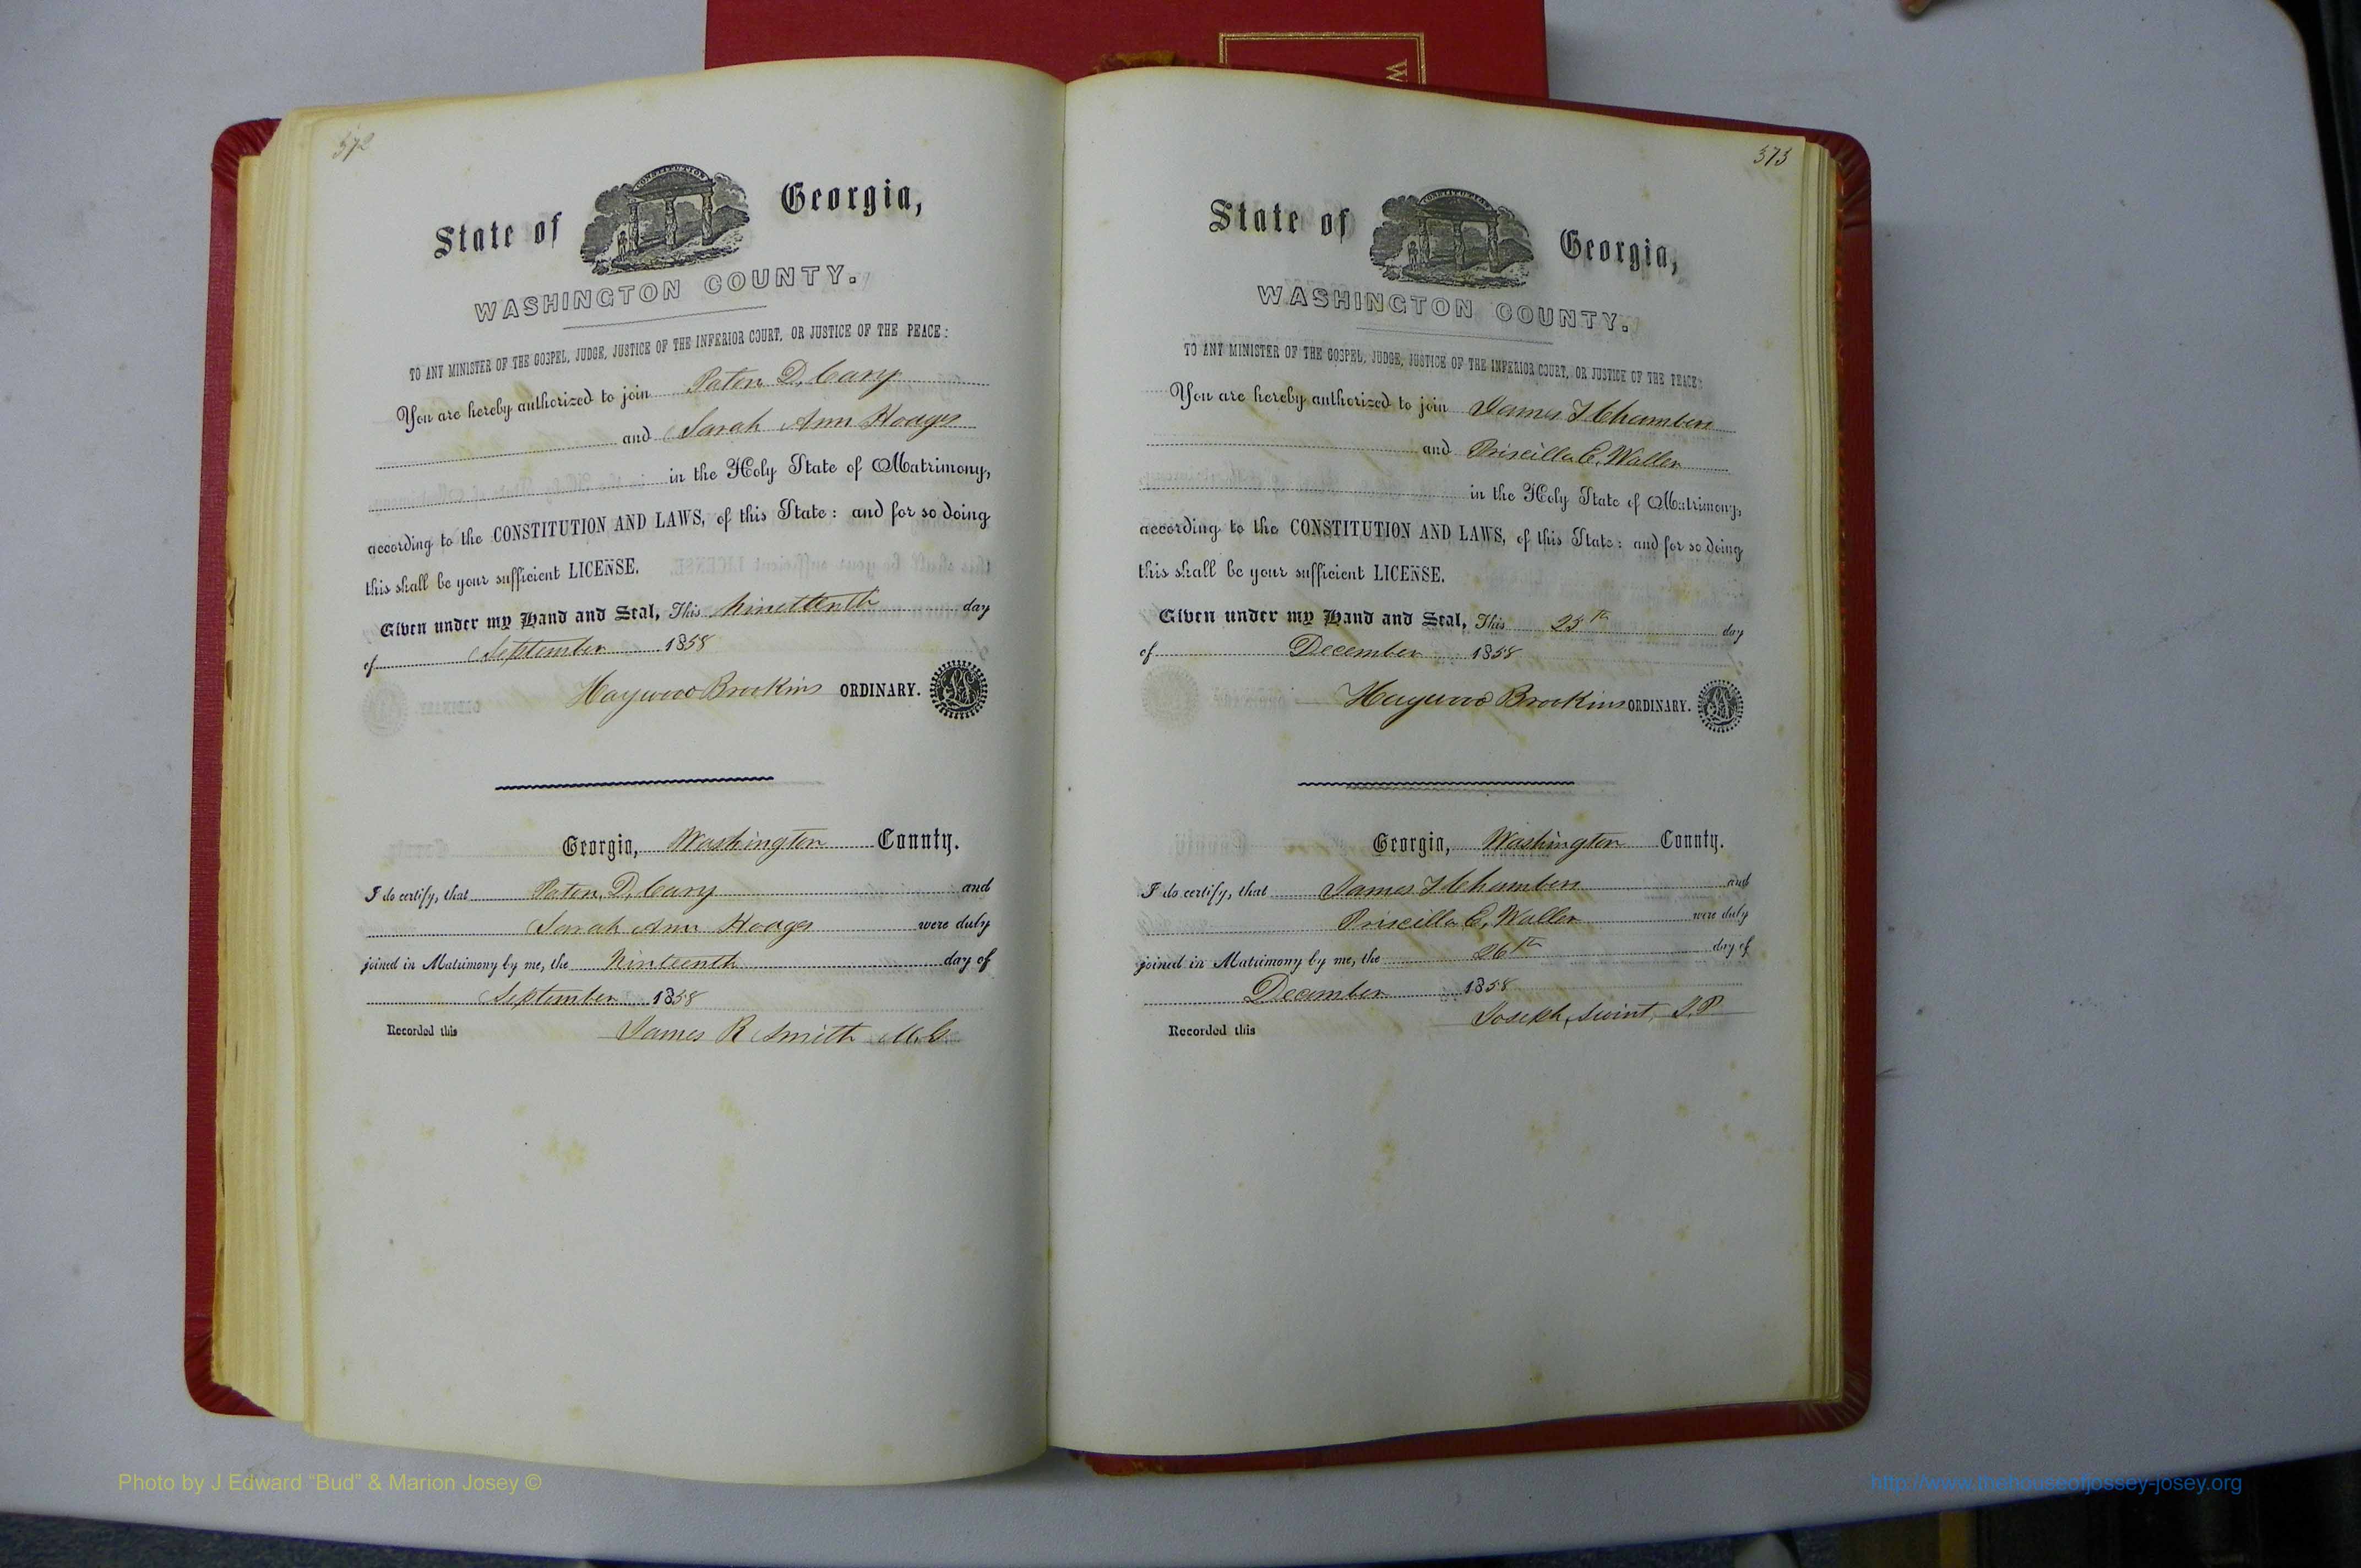 W
372
CONSTITUTION
State of Georgia,
WASHINGTON COUNTY.
TO ANY MINISTER OF THE GOSPEL, JUDGE, JUSTICE OF THE INFERIOR COURT, OR JUSTICE OF THE PEACE:
You are hereby authorized to join Paten D. Cary
and Sarah Ann Hooks
in the Holy State of Matrimony,
according to the CONSTITUTION AND LAWS, of this State: and for so doing
this shall be your sufficient LICENSE.
Given under my Hand and Seal, This Ninettenth day
of September 1858
Haywood Brookins ORDINARY.
Georgia, Washington County.
I do certify, that Paten. D. Cary and
Sarah Ann Hooks were duly
joined in Matrimony by me, the Ninteenth day of
September 1858
Recorded this James R Smith M.G.
373
CONSTITUTION
State of Georgia,
WASHINGTON COUNTY.
TO ANY MINISTER OF THE GOSPEL, JUDGE, JUSTICE OF THE INFERIOR COURT, OR JUSTICE OF THE PEACE:
You are hereby authorized to join James T Chambers
and Priscilla E. Waller
in the Holy State of Matrimony,
according to the CONSTITUTION AND LAWS, of this State: and for so doing
this shall be your sufficient LICENSE.
Given under my Hand and Seal, This 25th day
of December 1858
Haywood Brookins ORDINARY.
Georgia, Washington County.
I do certify, that James T Chambers and
Priscilla E. Waller were duly
joined in Matrimony by me, the 26th day of
December 1858
Joseph Swint J.P.
Recorded this
Photo by J Edward “Bud” & Marion Josey ©
http://www.thehouseofjossey-josey.org